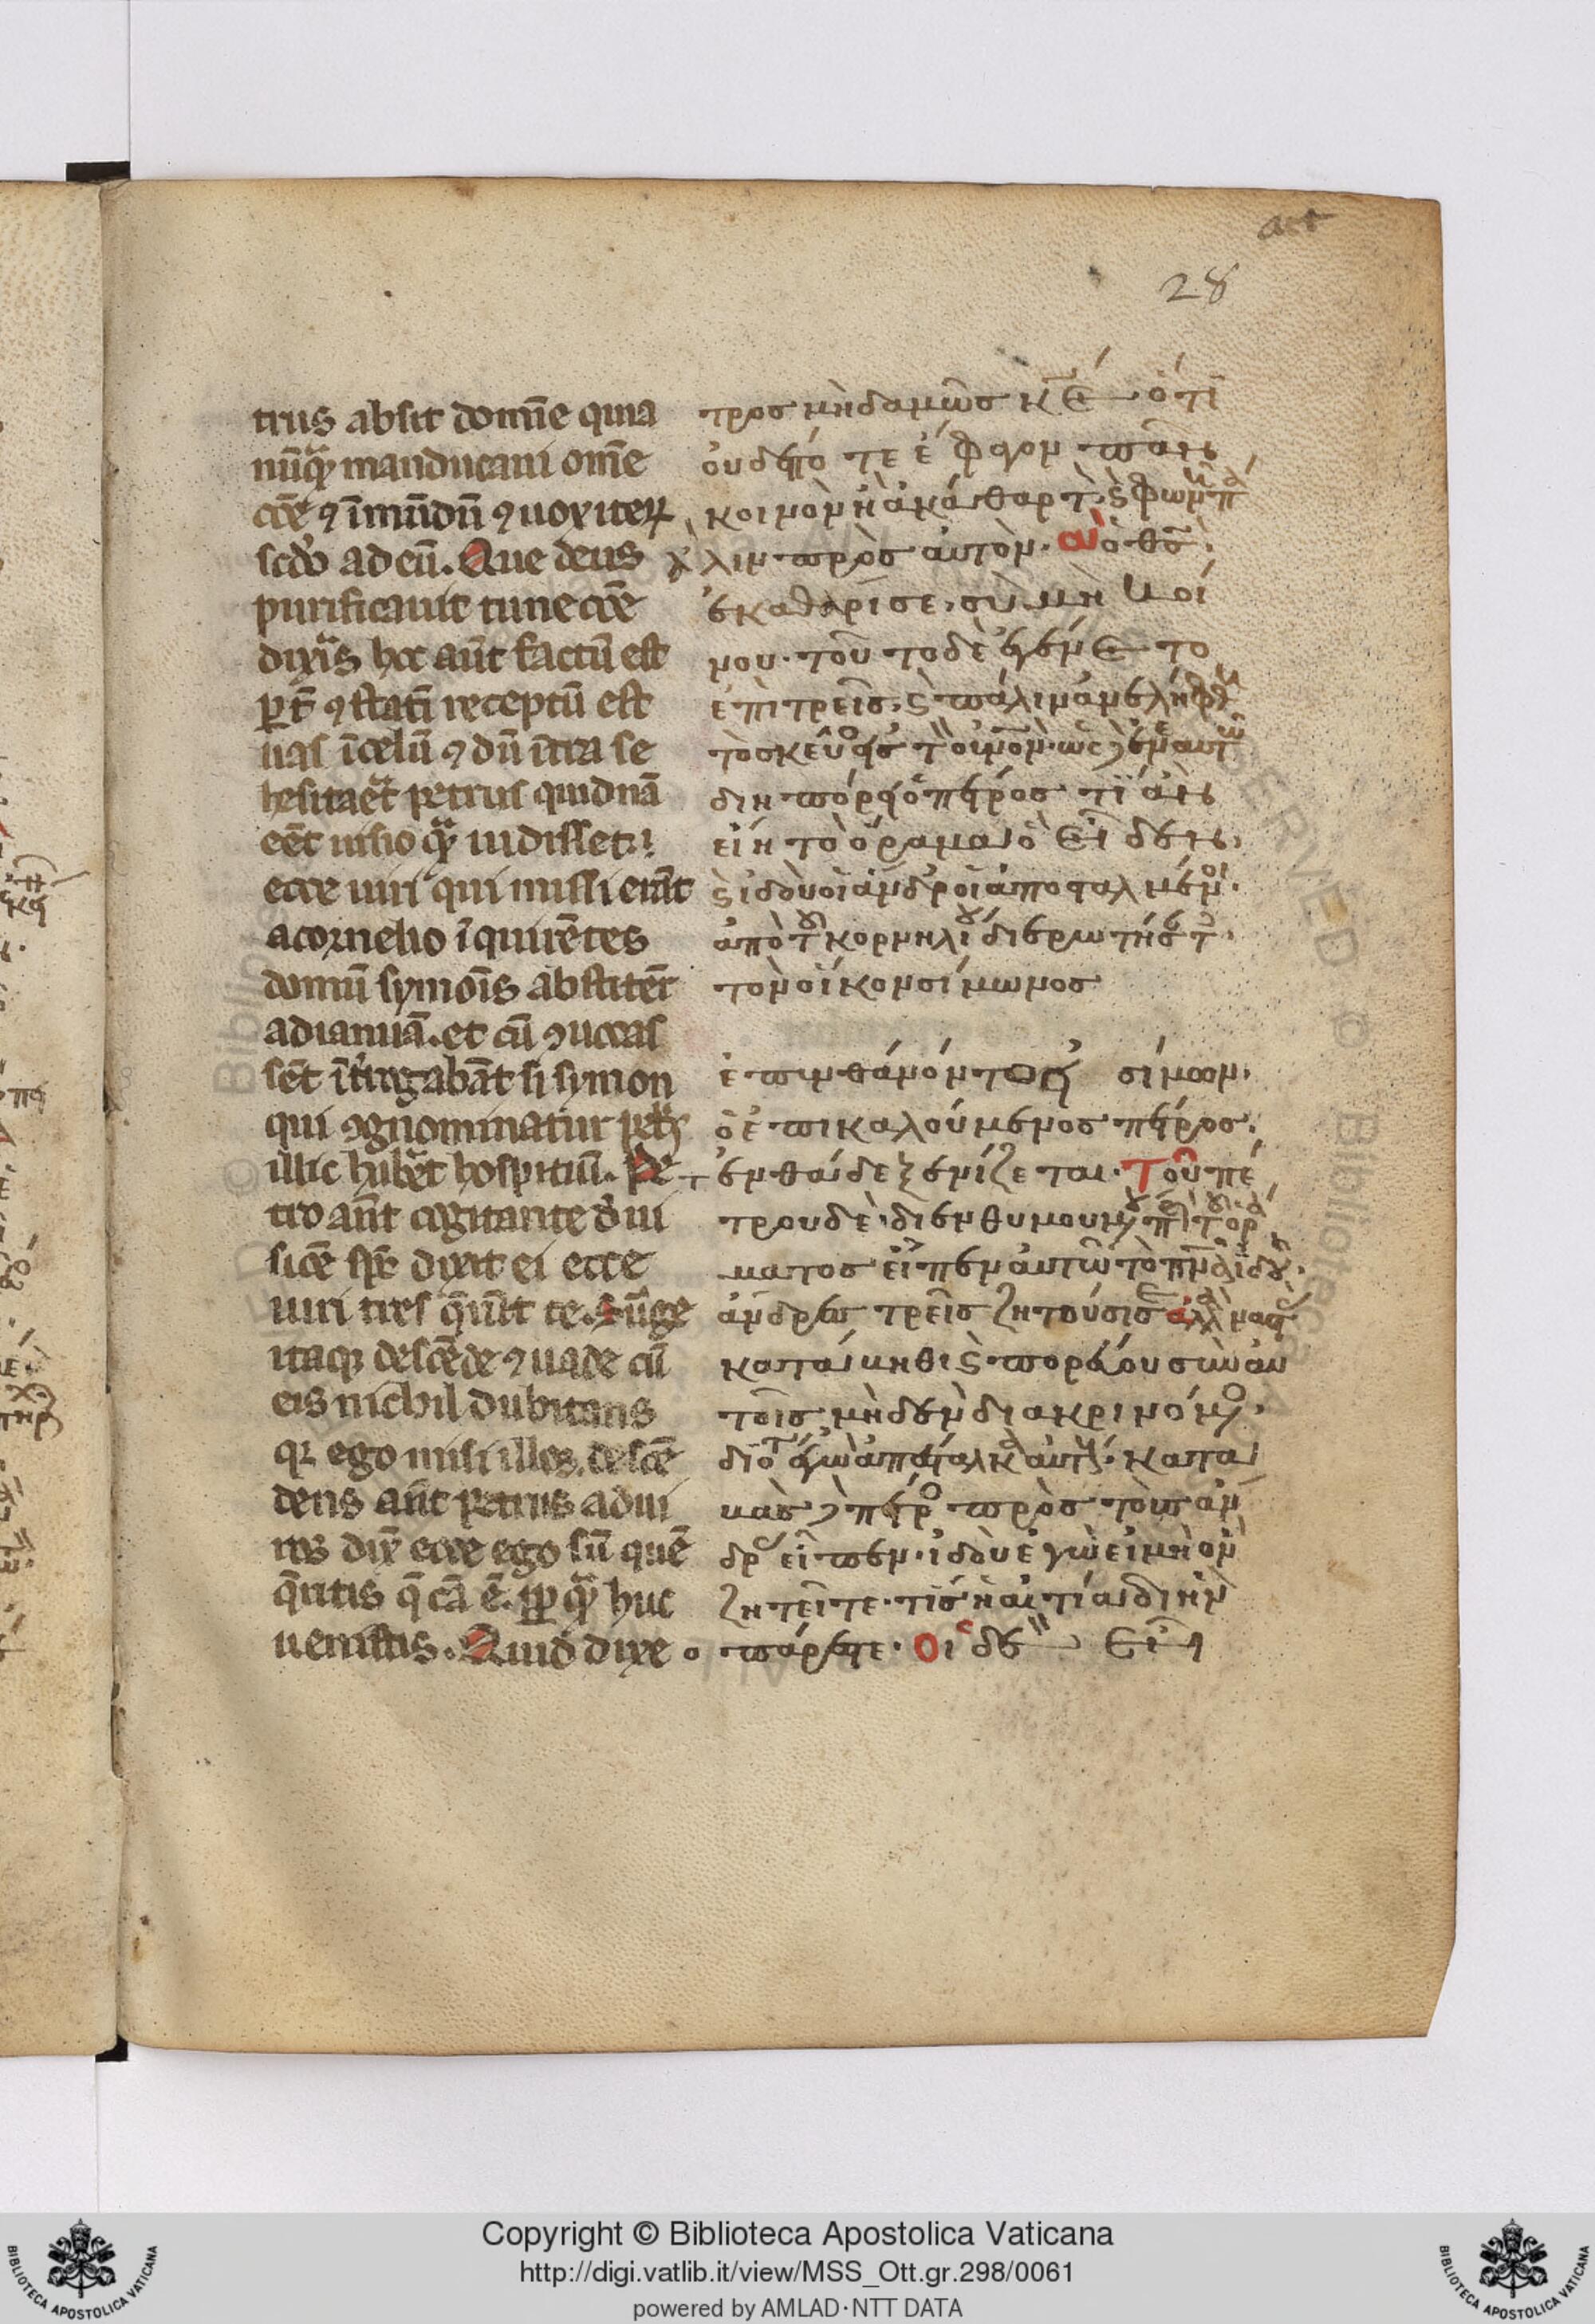 act
28
trus absit domīe quia
nūq̄ manducaui om̄e
cōe ⁊ īmūdū ⁊ uox iteꝝ
scd̄o ad eū. Que deus
purificauit tu ne cōe
dix̄is hoc aūt factū est
p t̄ ⁊ statī receptū est
uas ī celū ⁊ dū ītra se
hesitaēt petrus quidnā
eēt uisio q̄ uidisset
ecce uiri qui missi erāt
a cornelio īquirētes
domū symoīs abstitēr
ad ianuā. et cū ⁊uocas
sēt īt̄rogabāt si symon
qui ⁊gnominatur petꝰ
illic hūēt hospitiū. Pe
tro aūt cogitante d̄ ui
siōe sp̄c dixit ei ecce
uiri tres q̄rūt te. Surge
itaq; descēde ⁊ uade cū
eis nichil dubitans
qꝛ ego misi illos. descē
dens aūt petrus ad ui
ros dix̄ ecce ego sū quē
q̄ritis q̄ cā ē. pp̄ q̄ huc
uenistis. Quid dixe
τρος μὴδαμῶς κ̄ε ὅτι
οὐδέποτε ἔφαγον πᾶν
κοινὸν ἢ ἀκάθαρτ. ϛ φων πά
λιν πρὸς αὐτὸν. ἃ ὁ θς̄
ἐκαθάρισε, σὺ μὴ κοί
νου. τοῦτο δὲ ἐγένε το
ἐπὶ τρεῖς, ϛ πάλιν ἀνελήφθ
τὸ σκεῦος εἰς τ οὐνον. ὡς δὲ ἐν ἑαυτῶ
διηπόρει ὁ πέτρος τί ἂν
εἴη τὸ ὅραμα ὃ εἶδεν,
ϛ ἰδοὺ οἱ ἄνδρες οἱ ἀπεσταλμένοι
ἀπὸ τοῦ κορνηλίου διερωτήσαντ
τὸν οἶκον σίμωνος
ἐπυνθάνοντο εἰ σίμων
ὁ ἐπικαλούμενος πέτρος
ἐνθάδε ξενίζεται. Τοῦ πέ
τρου δὲ διενθυμουμου περὶ τοῦ ὁρά
ματος εἶπεν αὐτῶ τὸ πνᾱ ἰδού
ἄνδρες τρεῖς ζητοῦσι σε ἀλλὰ ἀναστὰς
κατάβηθι ϛ πορεύου σὺν αὐ
τοῖς μὴδὲν διακρινόμενος
διότι ἐγὼ ἀπέσταλκα αὐτούς. κατα
βὰς δὲ πέτρος πρὸς τοὺς ἄν
δρας εἶπεν. ἰδοὺ ἐγὼ εἰμὶ ὃν
ζητεῖτε. τίς ἡ αἰτία δι ἣν
πάρεστε. Οἱ δὲ εἶπ
Copyright © Biblioteca Apostolica Vaticana
http://digi.vatlib.it/view/MSS_Ott.gr.298/0061
powered by AMLAD·NTT DATA
BIBLIOTECA APOSTOLICA VATICANA
BIBLIOTECA APOSTOLICA VATICANA